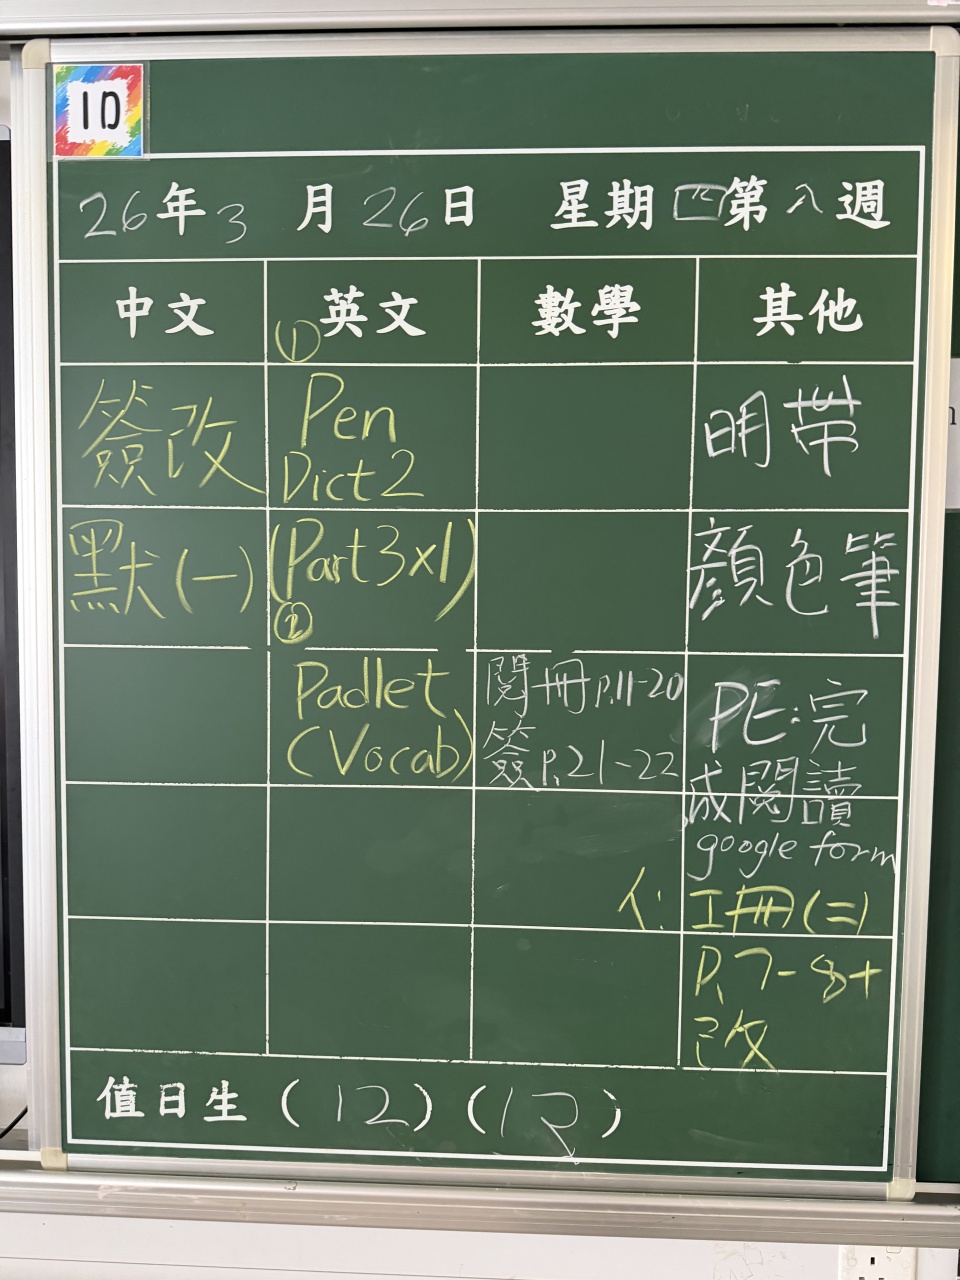 1D
26年3月26日 星期四第八週
中文
英文
數學
其他
簽改
默(一)
①
Pen
Dict 2
(Part 3x1)
②
Padlet
(Vocab)
閱冊P.11-20
簽P.21-22
明帶
顏色筆
PE:完
成閱讀
google form
人:工冊(二)
P.7-8+
改
值日生(12)(13)